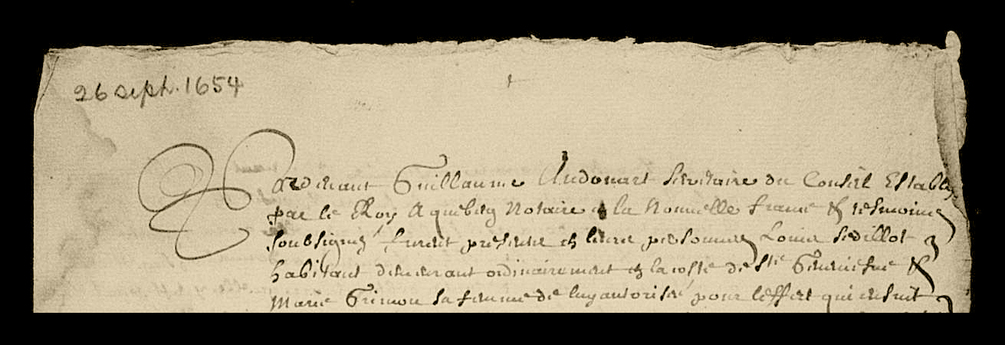 26 Seph. 1654
Pardevant Guillaume Audouart Secretaire du Conseil Estably
par le Roy A quebecq Notaire a la Nouvelle france & tesmoins
soubsignez furent presens en leurs personnes Louis Sedillot
habitant demeurant ordinairement en la coste de Ste Geneviefve &
Marie Grimou sa femme de luy autorisé pour leffect qui ensuit